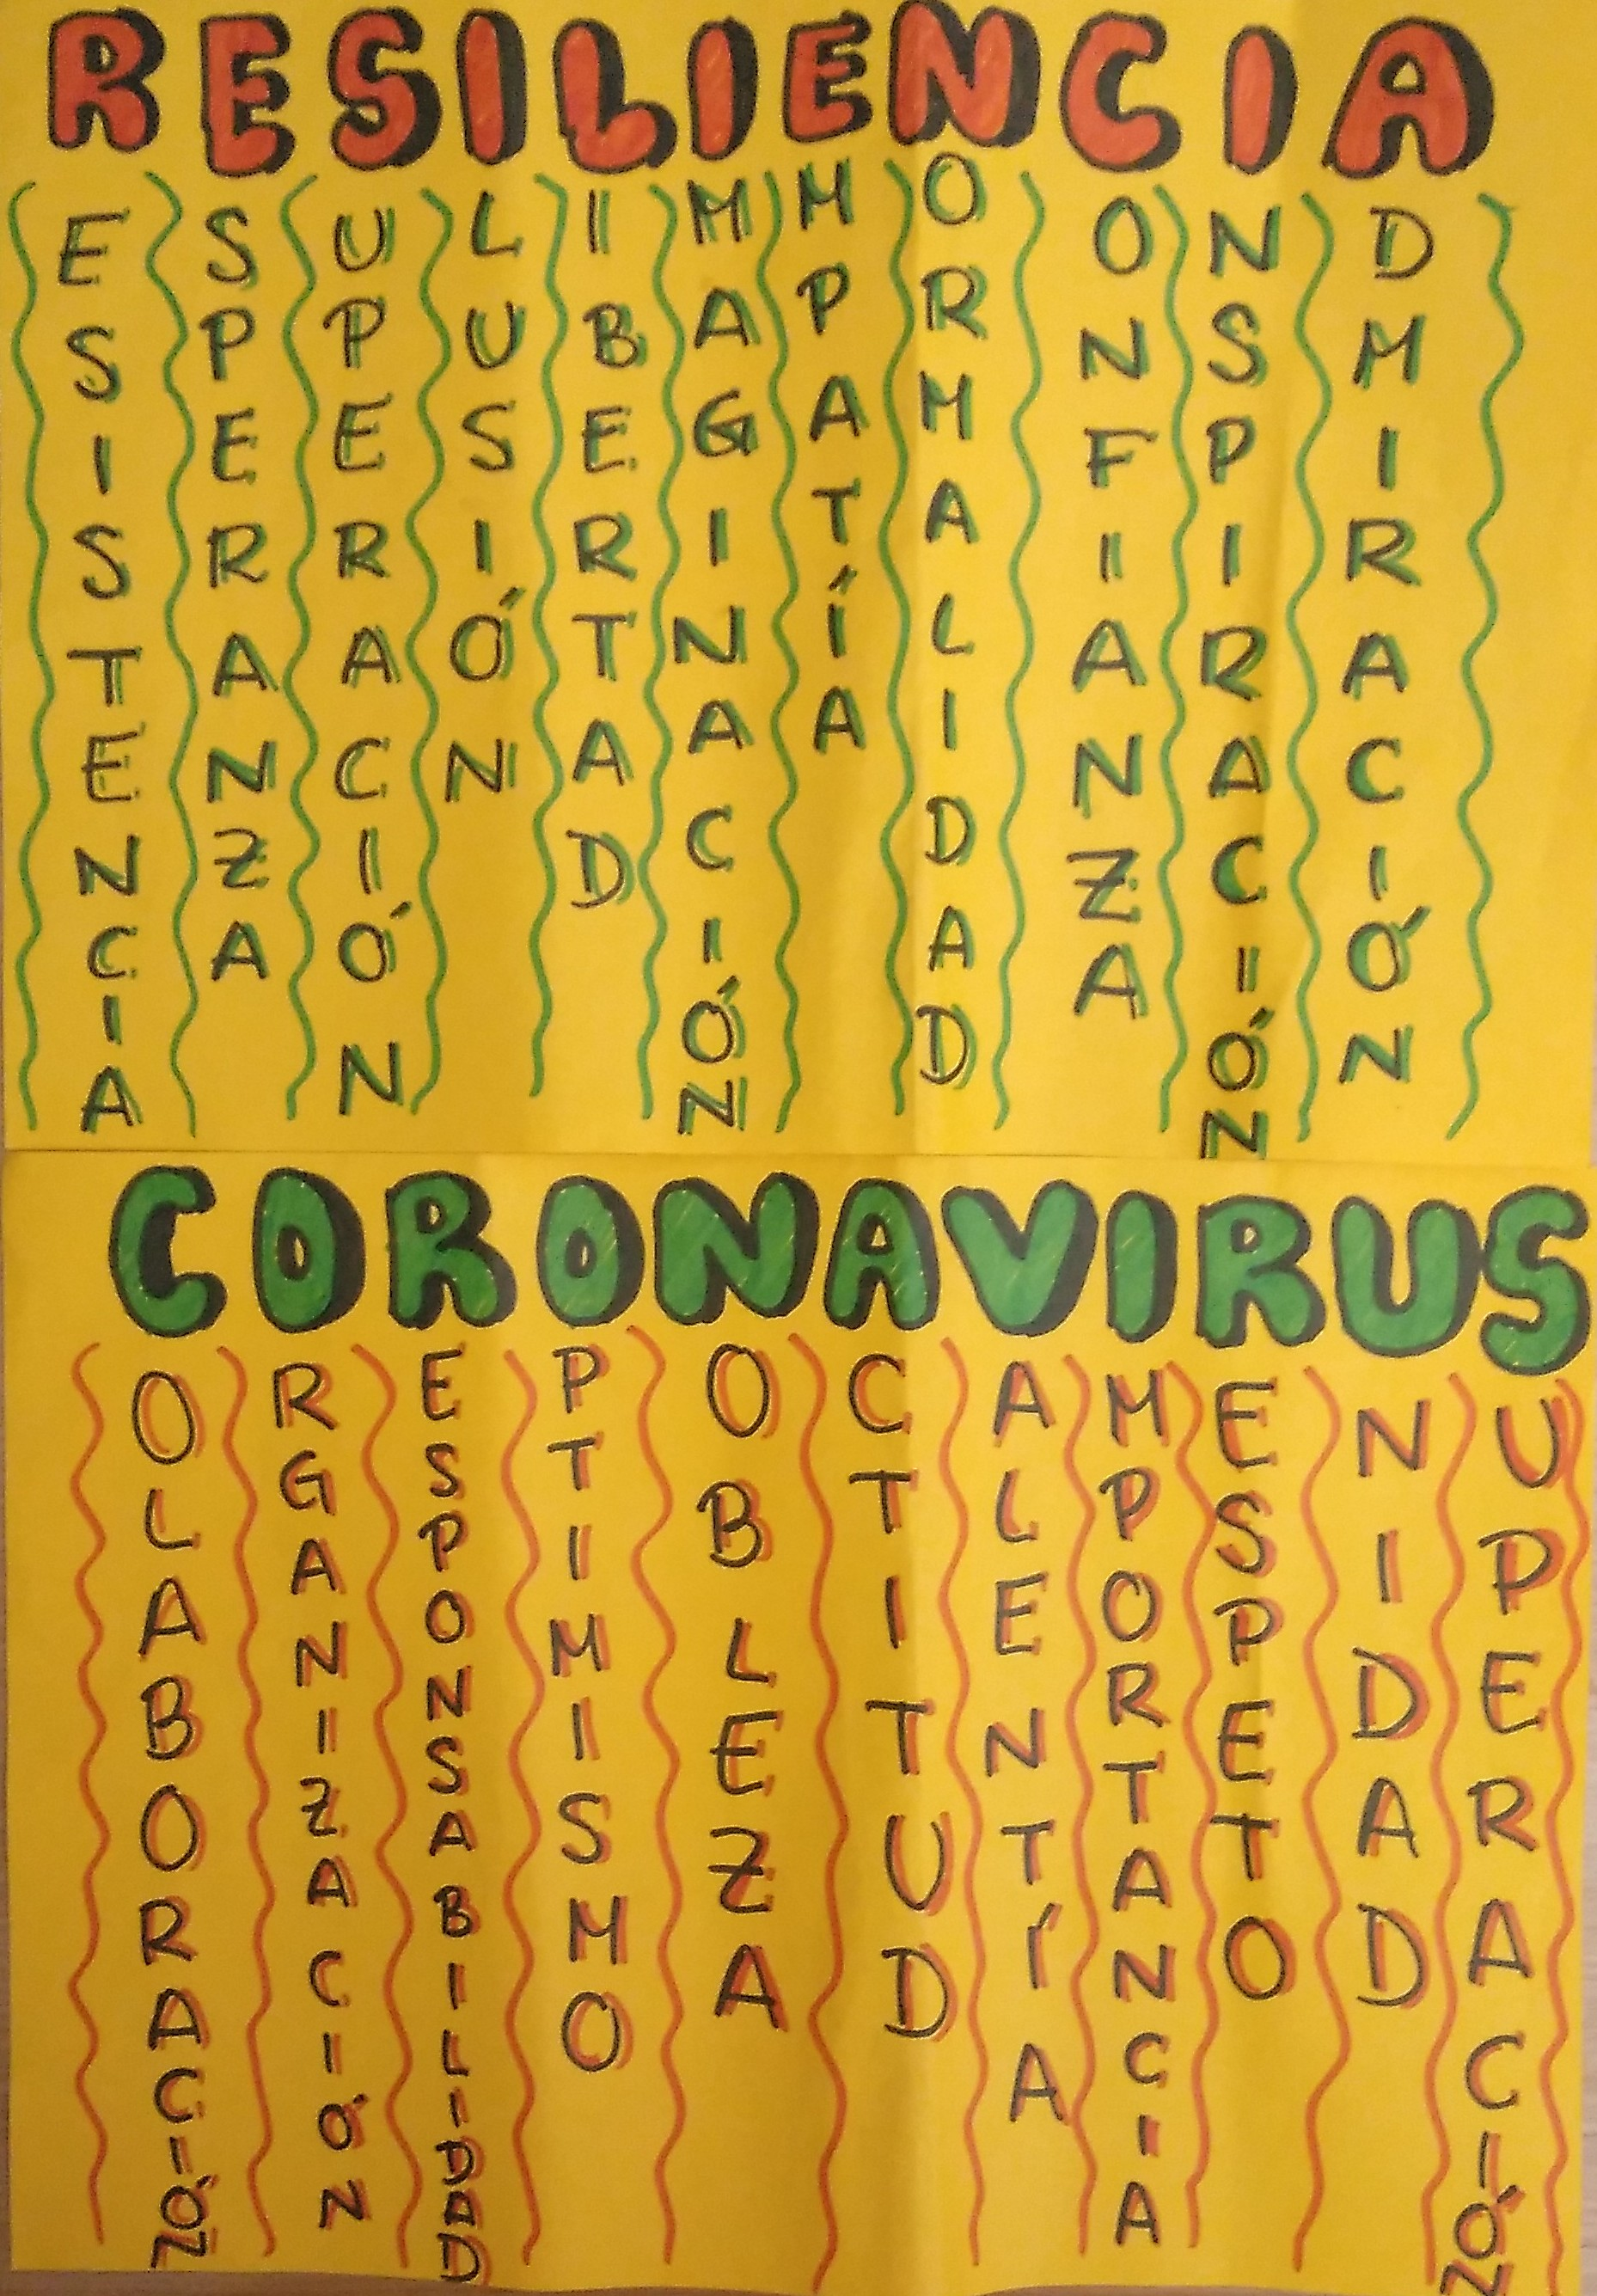 RESILIENCIA
ESISTENCIA
SPERANZA
UPERACIÓN
LUSIÓN
IBERTAD
MAGINACIÓN
MPATÍA
ORMALIDAD
ONFIANZA
NSPIRACIÓN
DMIRACIÓN
CORONAVIRUS
OLABORACIÓN
RGANIZACIÓN
ESPONSABILIDAD
PTIMISMO
OBLEZA
CTITUD
ALENTÍA
MPORTANCIA
ESPETO
NIDAD
UPERACIÓN